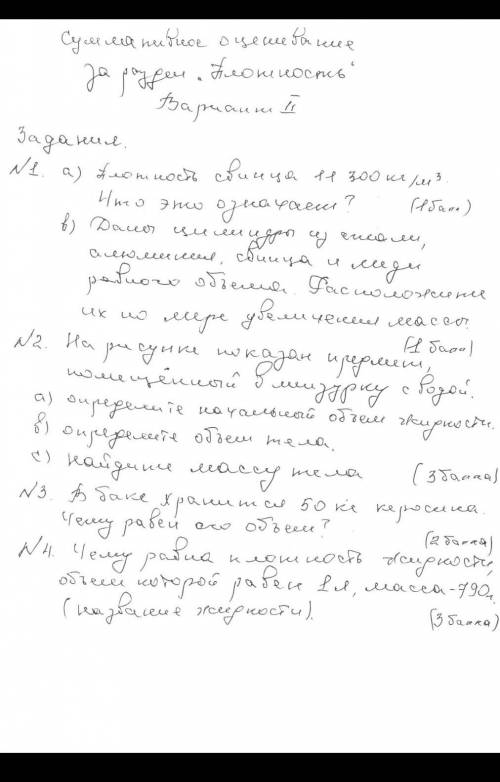 Суммативное оценивание
за раздел „Плотность"
Вариант II
Задания.
№1. а) Плотность свинца 11 300 кг/м³.
Что это означает? (1 балл)
в) Даны цилиндры из стали,
алюминия, свинца и меди
равного объема. Расположите
их по мере увеличения массы.
(1 балл)
№2. На рисунке показан предмет,
помещённый в мензурку с водой.
а) определите начальный объем жидкости.
в) определите объем тела.
с) найдите массу тела (3 балла)
№3. В баке хранится 50 кг керосина.
Чему равен его объем?
(2 балла)
№4. Чему равна плотность жидкости,
объем которой равен 1 л, масса - 790г.
(название жидкости). (3 балла)